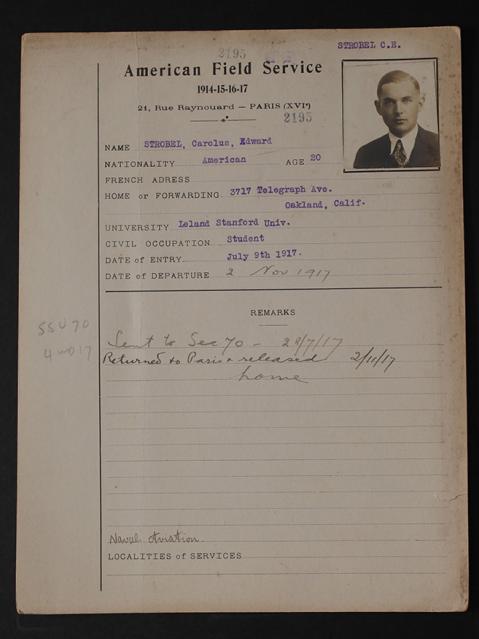 STROBEL C.E.
2195
American Field Service
1914-15-16-17
21, Rue Raynouard — PARIS (XVIe)
2195
NAME STROBEL, Carolus, Edward
NATIONALITY American AGE 20
FRENCH ADRESS
HOME or FORWARDING 3717 Telegraph Ave.
Oakland, Calif.
UNIVERSITY Leland Stanford Univ.
CIVIL OCCUPATION Student
DATE of ENTRY July 9th 1917.
DATE of DEPARTURE 2 Nov 1917
REMARKS
SSU 70
Sent to Sec 70 - 28/7/17
Returned to Paris & released 2/11/17
home
Naval Aviation
LOCALITIES of SERVICES